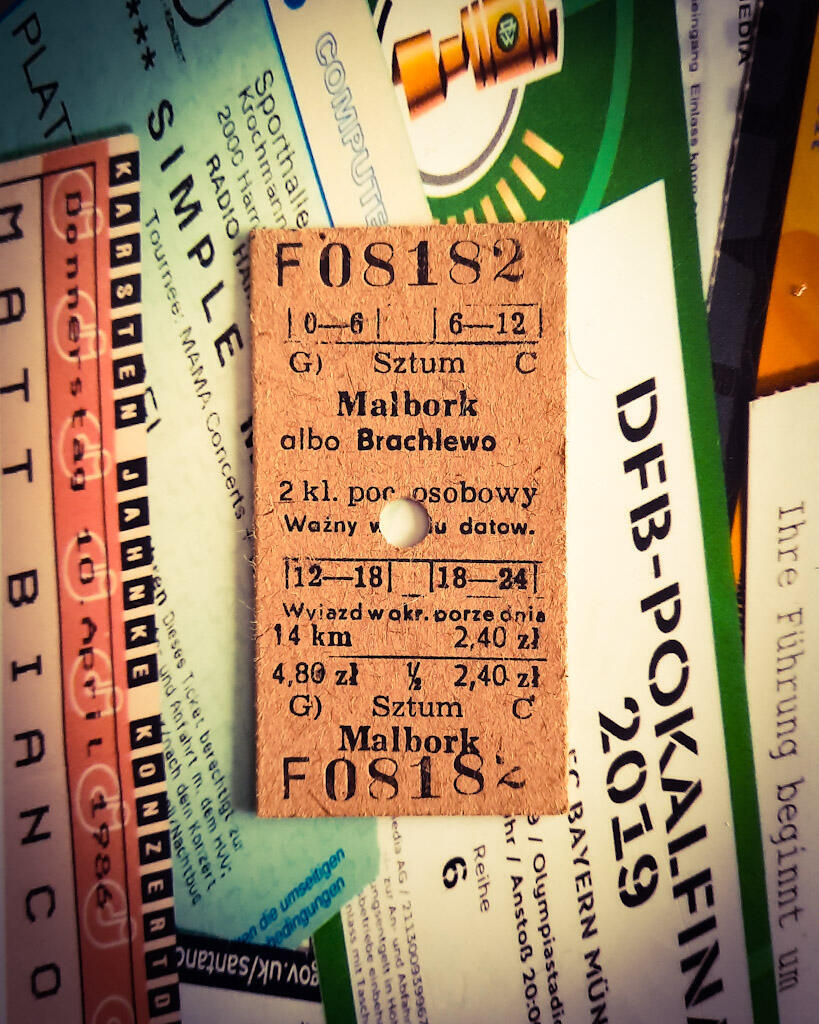 F 08182
0—6 6—12
G) Sztum C
Malbork
albo Brachlewo
2 kl. poc osobowy
Ważny w datow.
12—18 18—24
Wyjazd w okr. porze dnia
14 km 2,40 zł
4,80 zł ½ 2,40 zł
G) Sztum C
Malbork
F 08182
MATT BIANCO
Donnerstag 10. April 1986
KARSTEN JAHNKE KONZERTD
PLAT
**** SIMPLE M
Tournee: MAMA Concerts +
Sporthalle
Krochmann
2000 Ham
RADIO HA
COMPUTE
Dieses Ticket berechtigt zur
und Anfahrt m. dem HVV:
/nach dem Konzert
/Nachtbus
en die umseitigen
bedingungen
gov.uk/santand
DFB-POKALFIN
2019
FC BAYERN MÜN
/ Olympiastadi
hr / Anstoß 20:0
Reihe
6
edia AG / 211300939967
zur An- und Abfahr
EDIA
eingang Einlass kann
Ihre Führung beginnt um